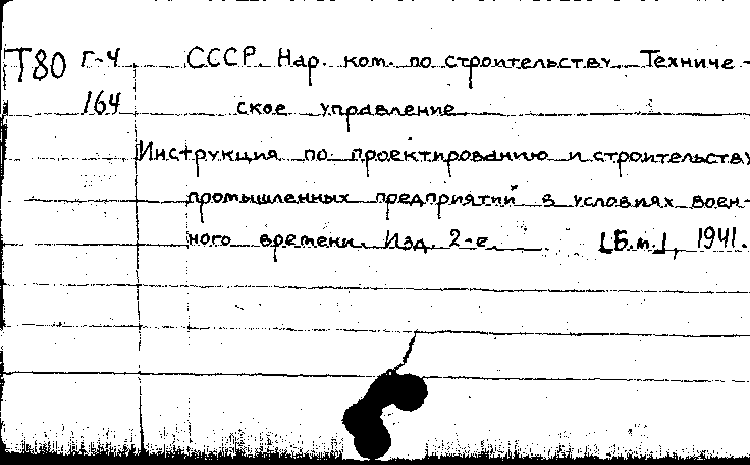 Т80 Г-4 СССР. Нар. ком. по строительству. Техниче-
164 ское управление
Инструкция по проектированию и строительству
промышленных предприятий в условиях воен-
ного времени. Изд. 2-е. [Б.м.], 1941.